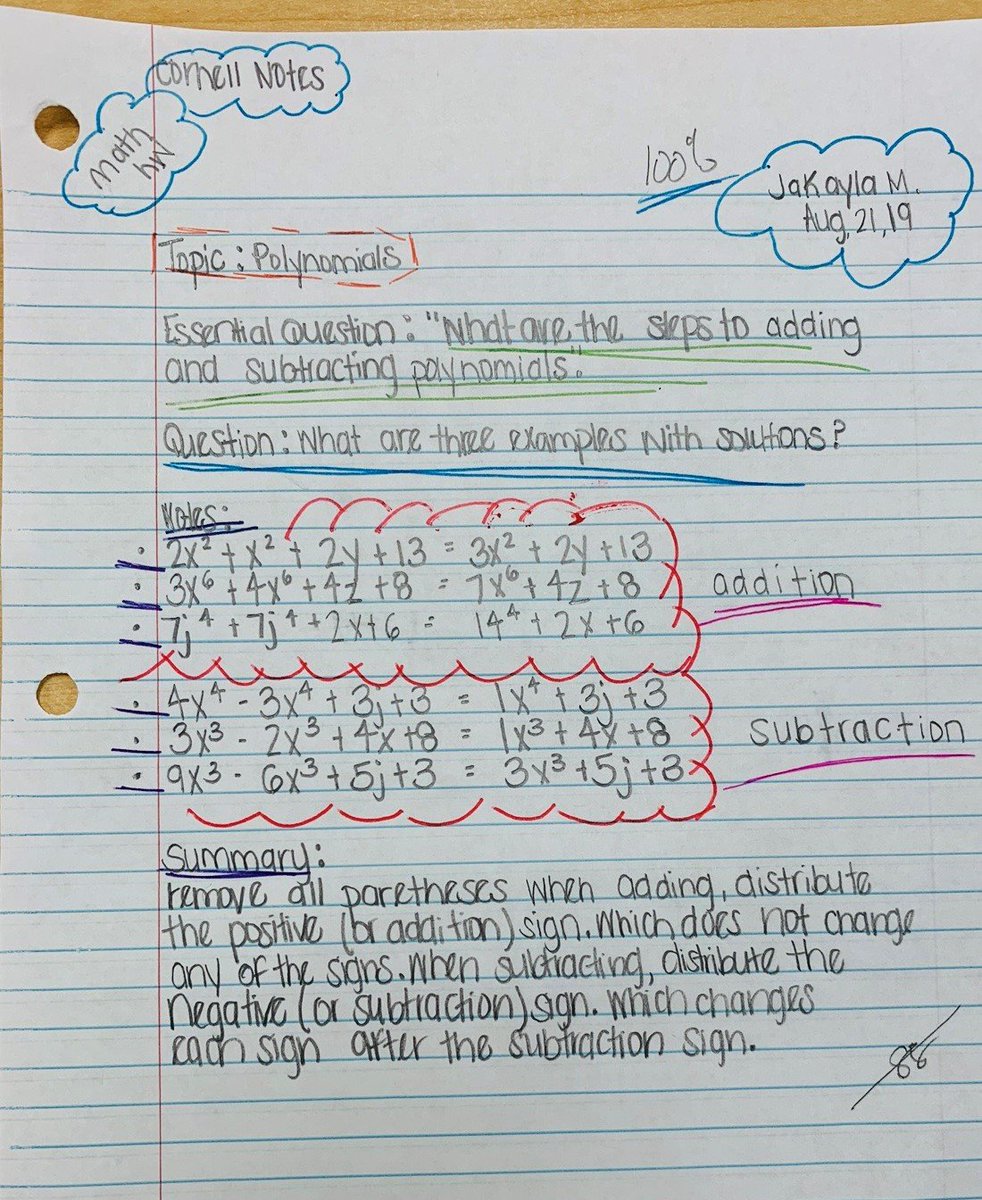 Cornell Notes
Math HW
100%
JaKayla M.
Aug, 21, 19
Topic: Polynomials
Essential Question: "What are the steps to adding
and subtracting polynomials."
Question: What are three examples with solutions?
Notes:
· 2x² + x² + 2y + 13 = 3x² + 2y + 13
· 3x⁶ + 4x⁶ + 4z + 8 = 7x⁶ + 4z + 8
· 7j⁴ + 7j⁴ + 2x + 6 = 14⁴ + 2x + 6
addition
· 4x⁴ - 3x⁴ + 3j + 3 = 1x⁴ + 3j + 3
· 3x³ - 2x³ + 4x + 8 = 1x³ + 4x + 8
· 9x³ - 6x³ + 5j + 3 = 3x³ + 5j + 3
subtraction
Summary:
remove all paretheses when adding, distribute
the positive (or addition) sign. Which does not change
any of the signs. When subtracting, distribute the
negative (or subtraction) sign. Which changes
each sign after the subtraction sign.